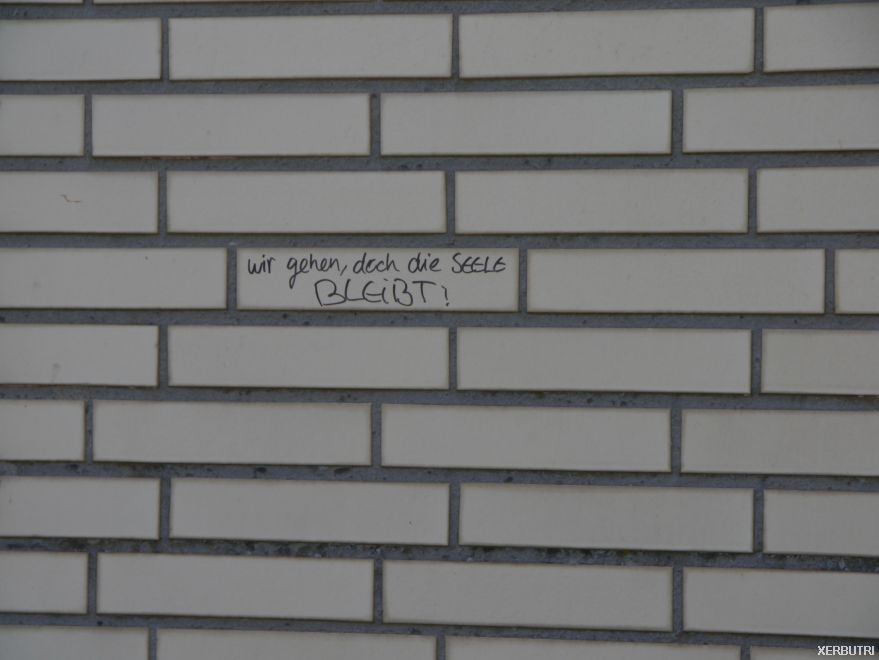 wir gehen, doch die SEELE
BLEiBT!
XERBUTRI